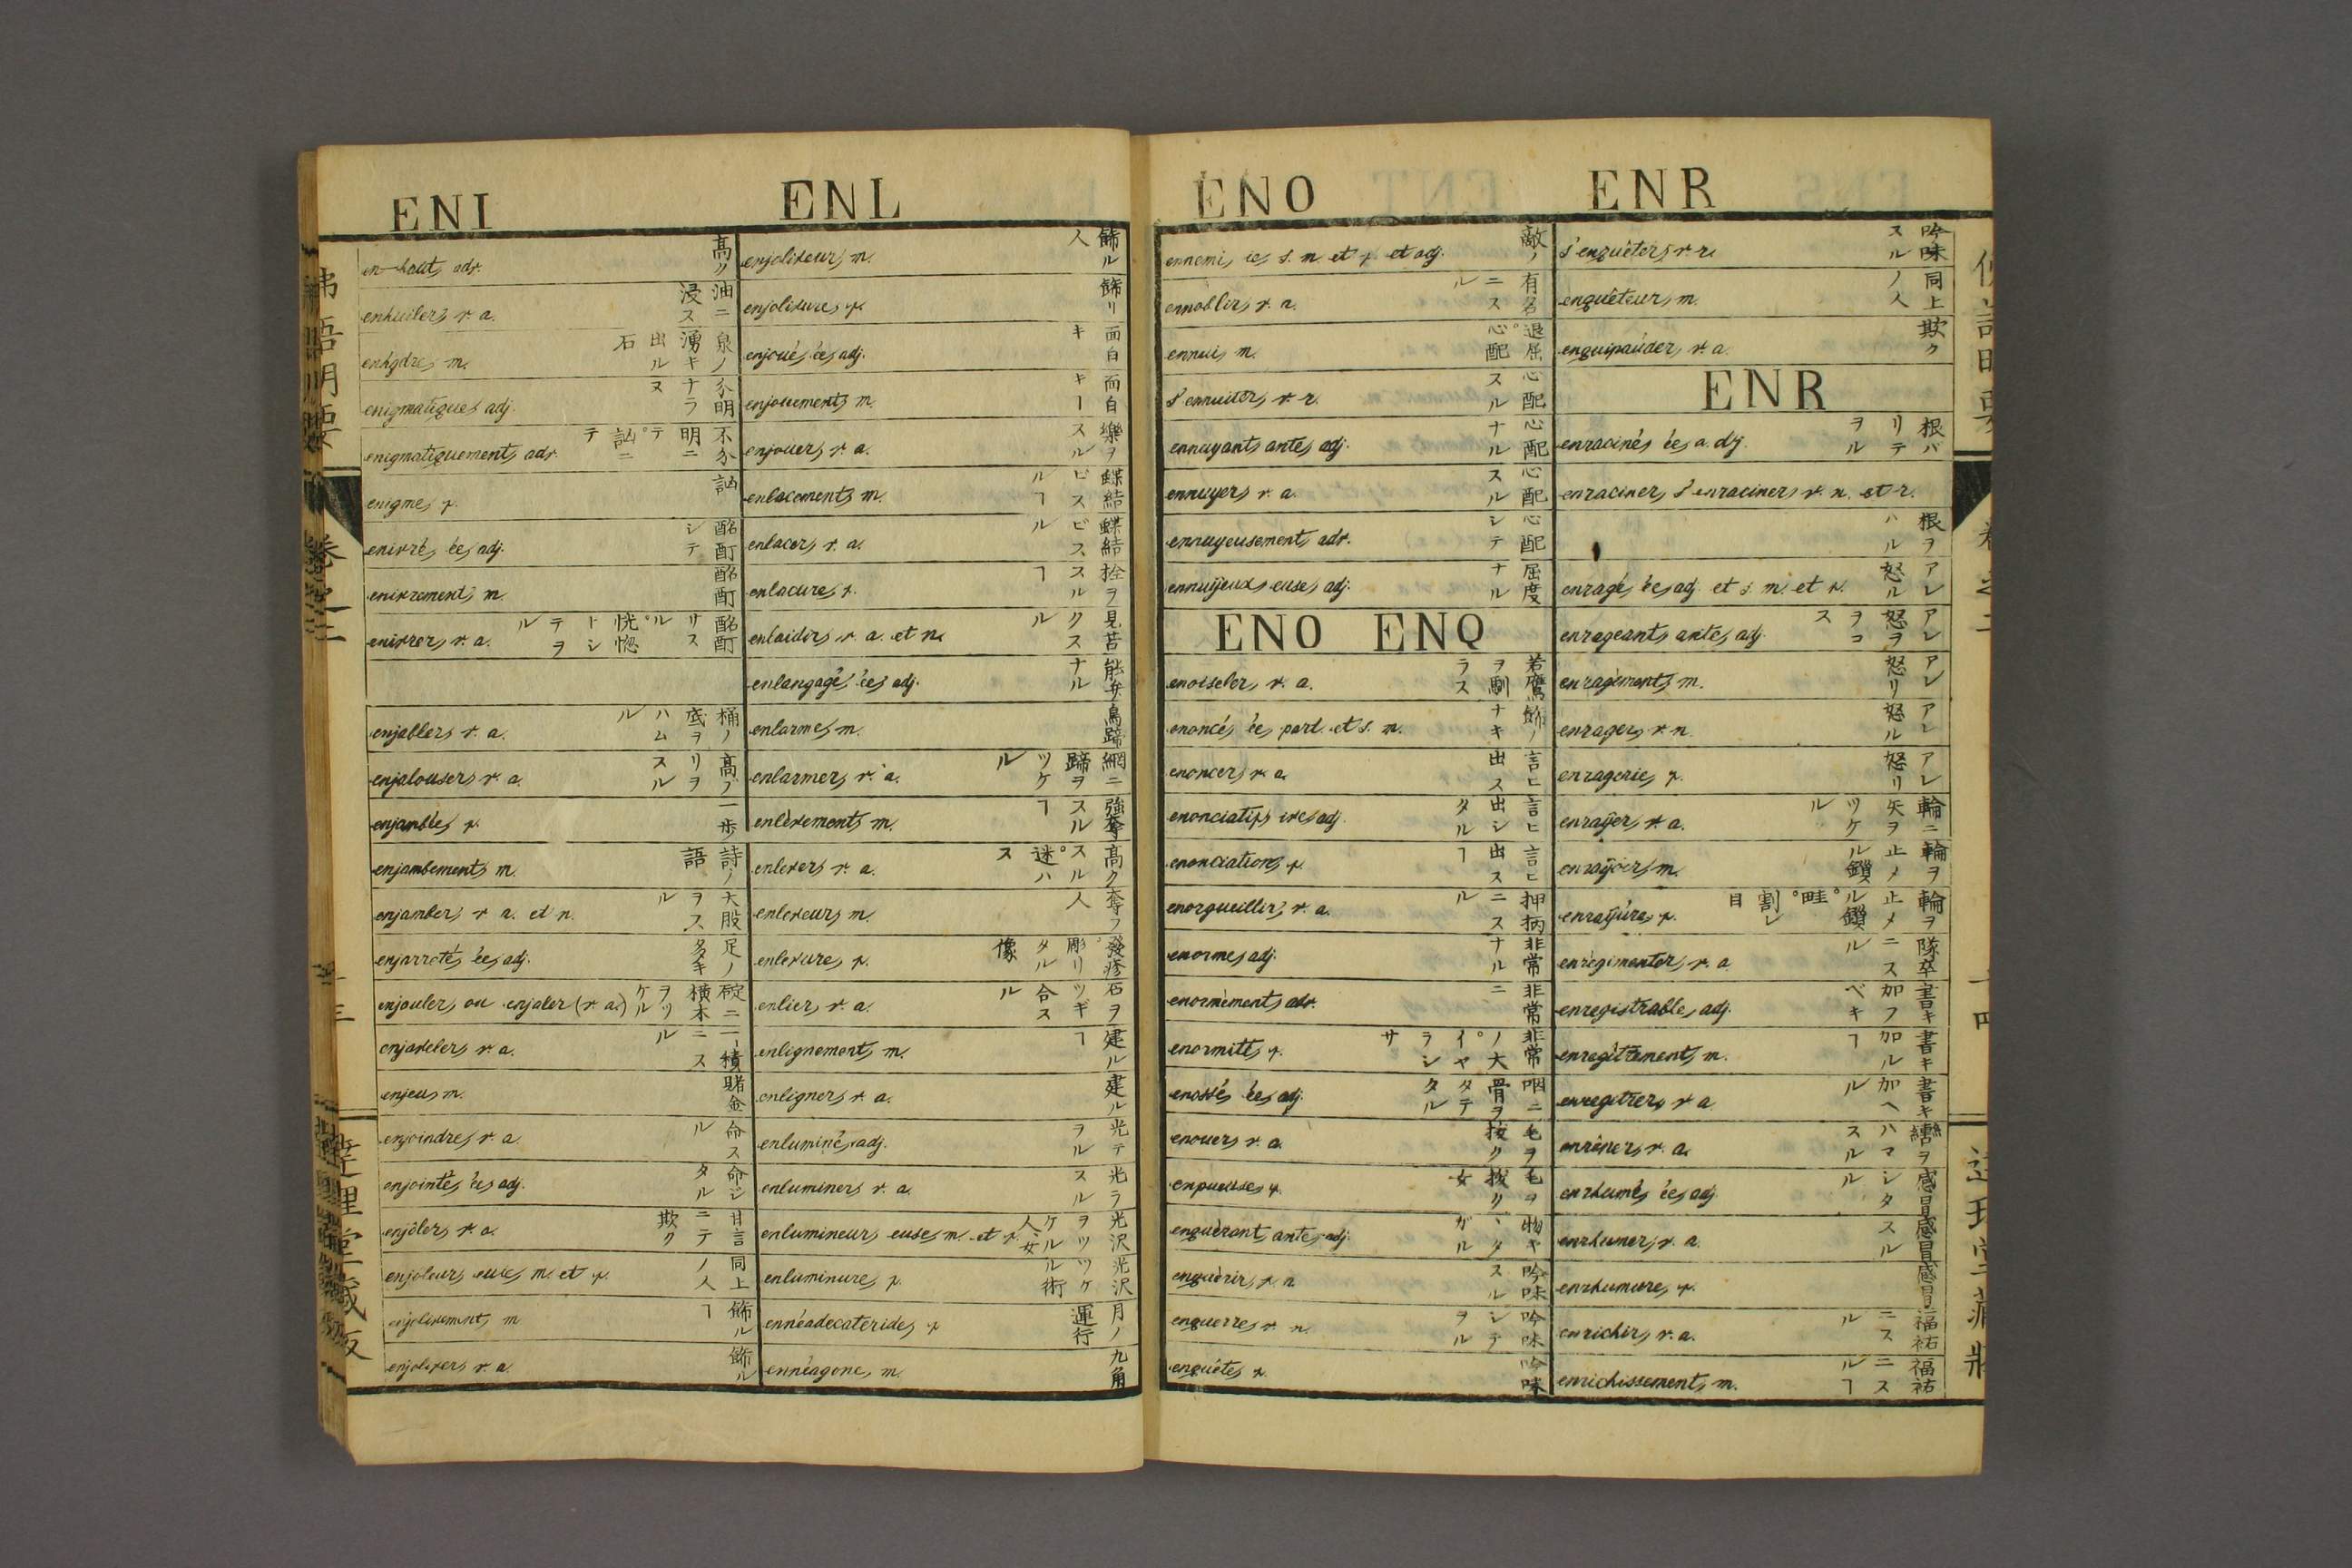 ENI
ENL
en-haut, adv. 高ク
enhuiler, v. a. 油ニ浸ス
enhydre, m. 泉ノ湧キ出ル石
enigmatique, adj. 分明ナラヌ
enigmatiquement, adv. 不分明ニテ。訩ニテ
enigme, f. 訩
enivré, ée, adj. 酩酊シテ
enivrement, m. 酩酊
enivrer, v. a. 酩酊サスル。恍惚トシテヲル
enjabler, v. a. 桶ノ底ヲハムル
enjalouser, v. a. 高ブリヲスル
enjambée, f. 一歩
enjambement, m. 詩ノ語
enjamber, v. a. et n. 大股ヲスル
enjarreté, ée, adj. 足ノ多キ
enjauler, ou enjaler (v. a.) 碇ニ横木ヲツケル
enjaveler, v. a. 一積ニスル
enjeu, m. 賭金
enjoindre, v. a. 命スル
enjointé, ée, adj. 命ジタル
enjôler, v. a. 甘言ニテ欺ク
enjoleur, euse, m. et f. 同上ノ人
enjolivement, m. 飾ルヿ
enjoliver, v. a. 飾ル
enjoliveur, m. 飾ル人
enjolivure, f. 飾リ
enjoué, ée, adj. 面白キ
enjouement, m. 面白キヿ
enjouer, v. a. 樂ヲスル
enlacement, m. 蝶結ビスルヿ
enlacer, v. a. 蝶結ビスル
enlaçure, f. 拴ヲスルヿ
enlaidir, v. a. et n. 見苦クスル
enlangagé, ée, adj. 能弁ナル
enlarme, m. 鳥蹄
enlarmer, v. a. 網ニ蹄ヲツケル
enlèvement, m. 強奪スルヿ
enlever, v. a. 高クスル。迷ハス
enleveur, m. 奪フ人
enlevure, f. 發疹。彫リタル像
enlier, v. a. 石ヲツギ合スル
enlignement, m. 建ルヿ
enligner, v. a. 建ル
enluminé, adj. 光テヲル
enluminer, v. a. 光ラスル
enlumineur, euse, m. et f. 光沢ヲツケル人、女
enluminure, f. 光沢ツケル術
ennéadecatéride, f. 月ノ運行
ennéagone, m. 九角
ENO
ENR
ennemi, ie, s. m. et f. et adj. 敵ノ
ennoblir, v. a. 有名ニスル
ennui, m. 退屈。心配
s'ennuiter, v. r. 心配スル
ennuyant, ante, adj. 心配ナル
ennuyer, v. a. 心配スル
ennuyeusement, adv. 心配シテ
ennuÿeux, euse, adj. 屈度ナル
ENO ENQ
enoiseler, v. a. 若鷹ヲ馴ラス
enoncé, ée, part. et s. m. 飾ノナキ
enoncer, v. a. 言ヒ出ス
enonciatif, ive, adj. 言ヒ出シタル
enonciation, f. 言ヒ出スヿ
enorgueillir, v. a. 押柄ニスル
enorme, adj. 非常ナル
enormément, adv. 非常ニ
enormité, f. 非常ノ大。イヤラシサ
enossé, ée, adj. 咽ニ骨ヲタテタル
enouer, v. a. 毛ヲ抜ク
enpueuse, f. 毛ヲ抜ク女
enquérant, ante, adj. 物ヤヽタガル
enquérir, v. n. 吟味スル
enquerre, v. n. 吟味シテヲル
enquête, f. 吟味
s'enquêter, v. r. 吟味スル
enquêteur, m. 同上ノ人
enquipauder, v. a. 欺ク
ENR
enraciné, ée, a. dj. 根バリテヲル
enraciner, s'enraciner, v. n. et r. 根ヲハル
enragé, ée, adj. et s. m. et f. アレ怒ル
enrageant, ante, adj. アレ怒ヲヲコス
enragement, m. アレ怒リ
enrager, v. n. アレ怒ル
enragerie, f. アレ怒リ
enraÿer, v. a. 輪ニ矢ヲツケル
enraÿoir, m. 輪ヲ止メル鎖
enraÿure, f. 輪ヲ止メル鎖。畦。割レ目
enrégimenter, v. a. 隊卒ニスル
enregistrable, adj. 書キ加フベキ
enregîtrement, m. 書キ加ルヿ
enregîtrer, v. a. 書キ加ヘル
enrêner, v. a. 轡ヲハマスル
enrhumé, ée, adj. 感冒シタル
enrhumer, v. a. 感冒スル
enrhumure, f. 感冒
enrichir, v. a. 福祐ニスル
enrichissement, m. 福祐ニスルヿ